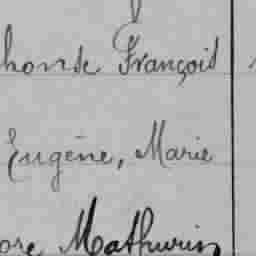 honse François
Eugène, Marie
ore Mathurin